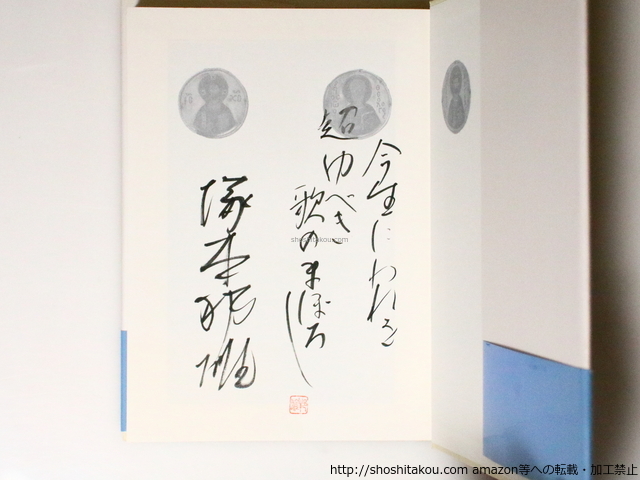 今生にわれを
超ゆべき
歌のまぼろし
塚本邦雄
shoshitakou.com
http://shoshitakou.com amazon等への転載・加工禁止